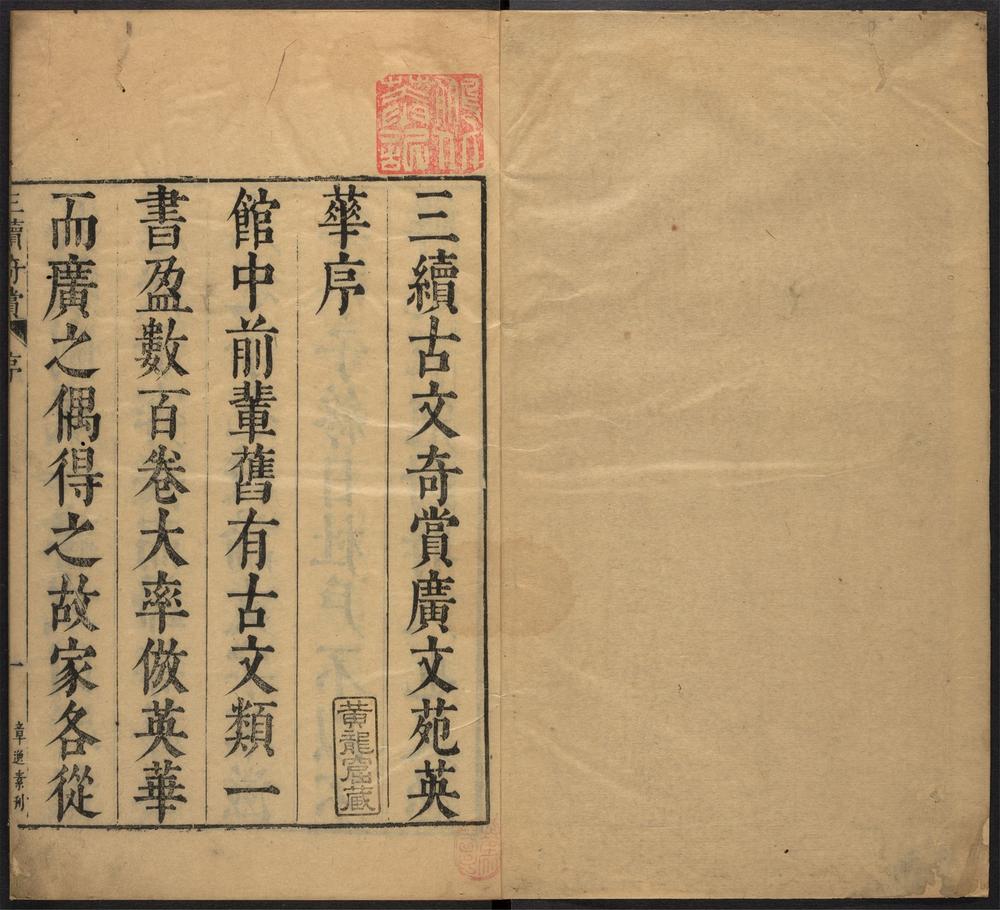 三續古文奇賞廣文苑英
華序
館中前輩舊有古文類一
書盈數百卷大率倣英華
而廣之偶得之故家各從
三續奇賞
序
一
章進素刋
黃龍窟藏